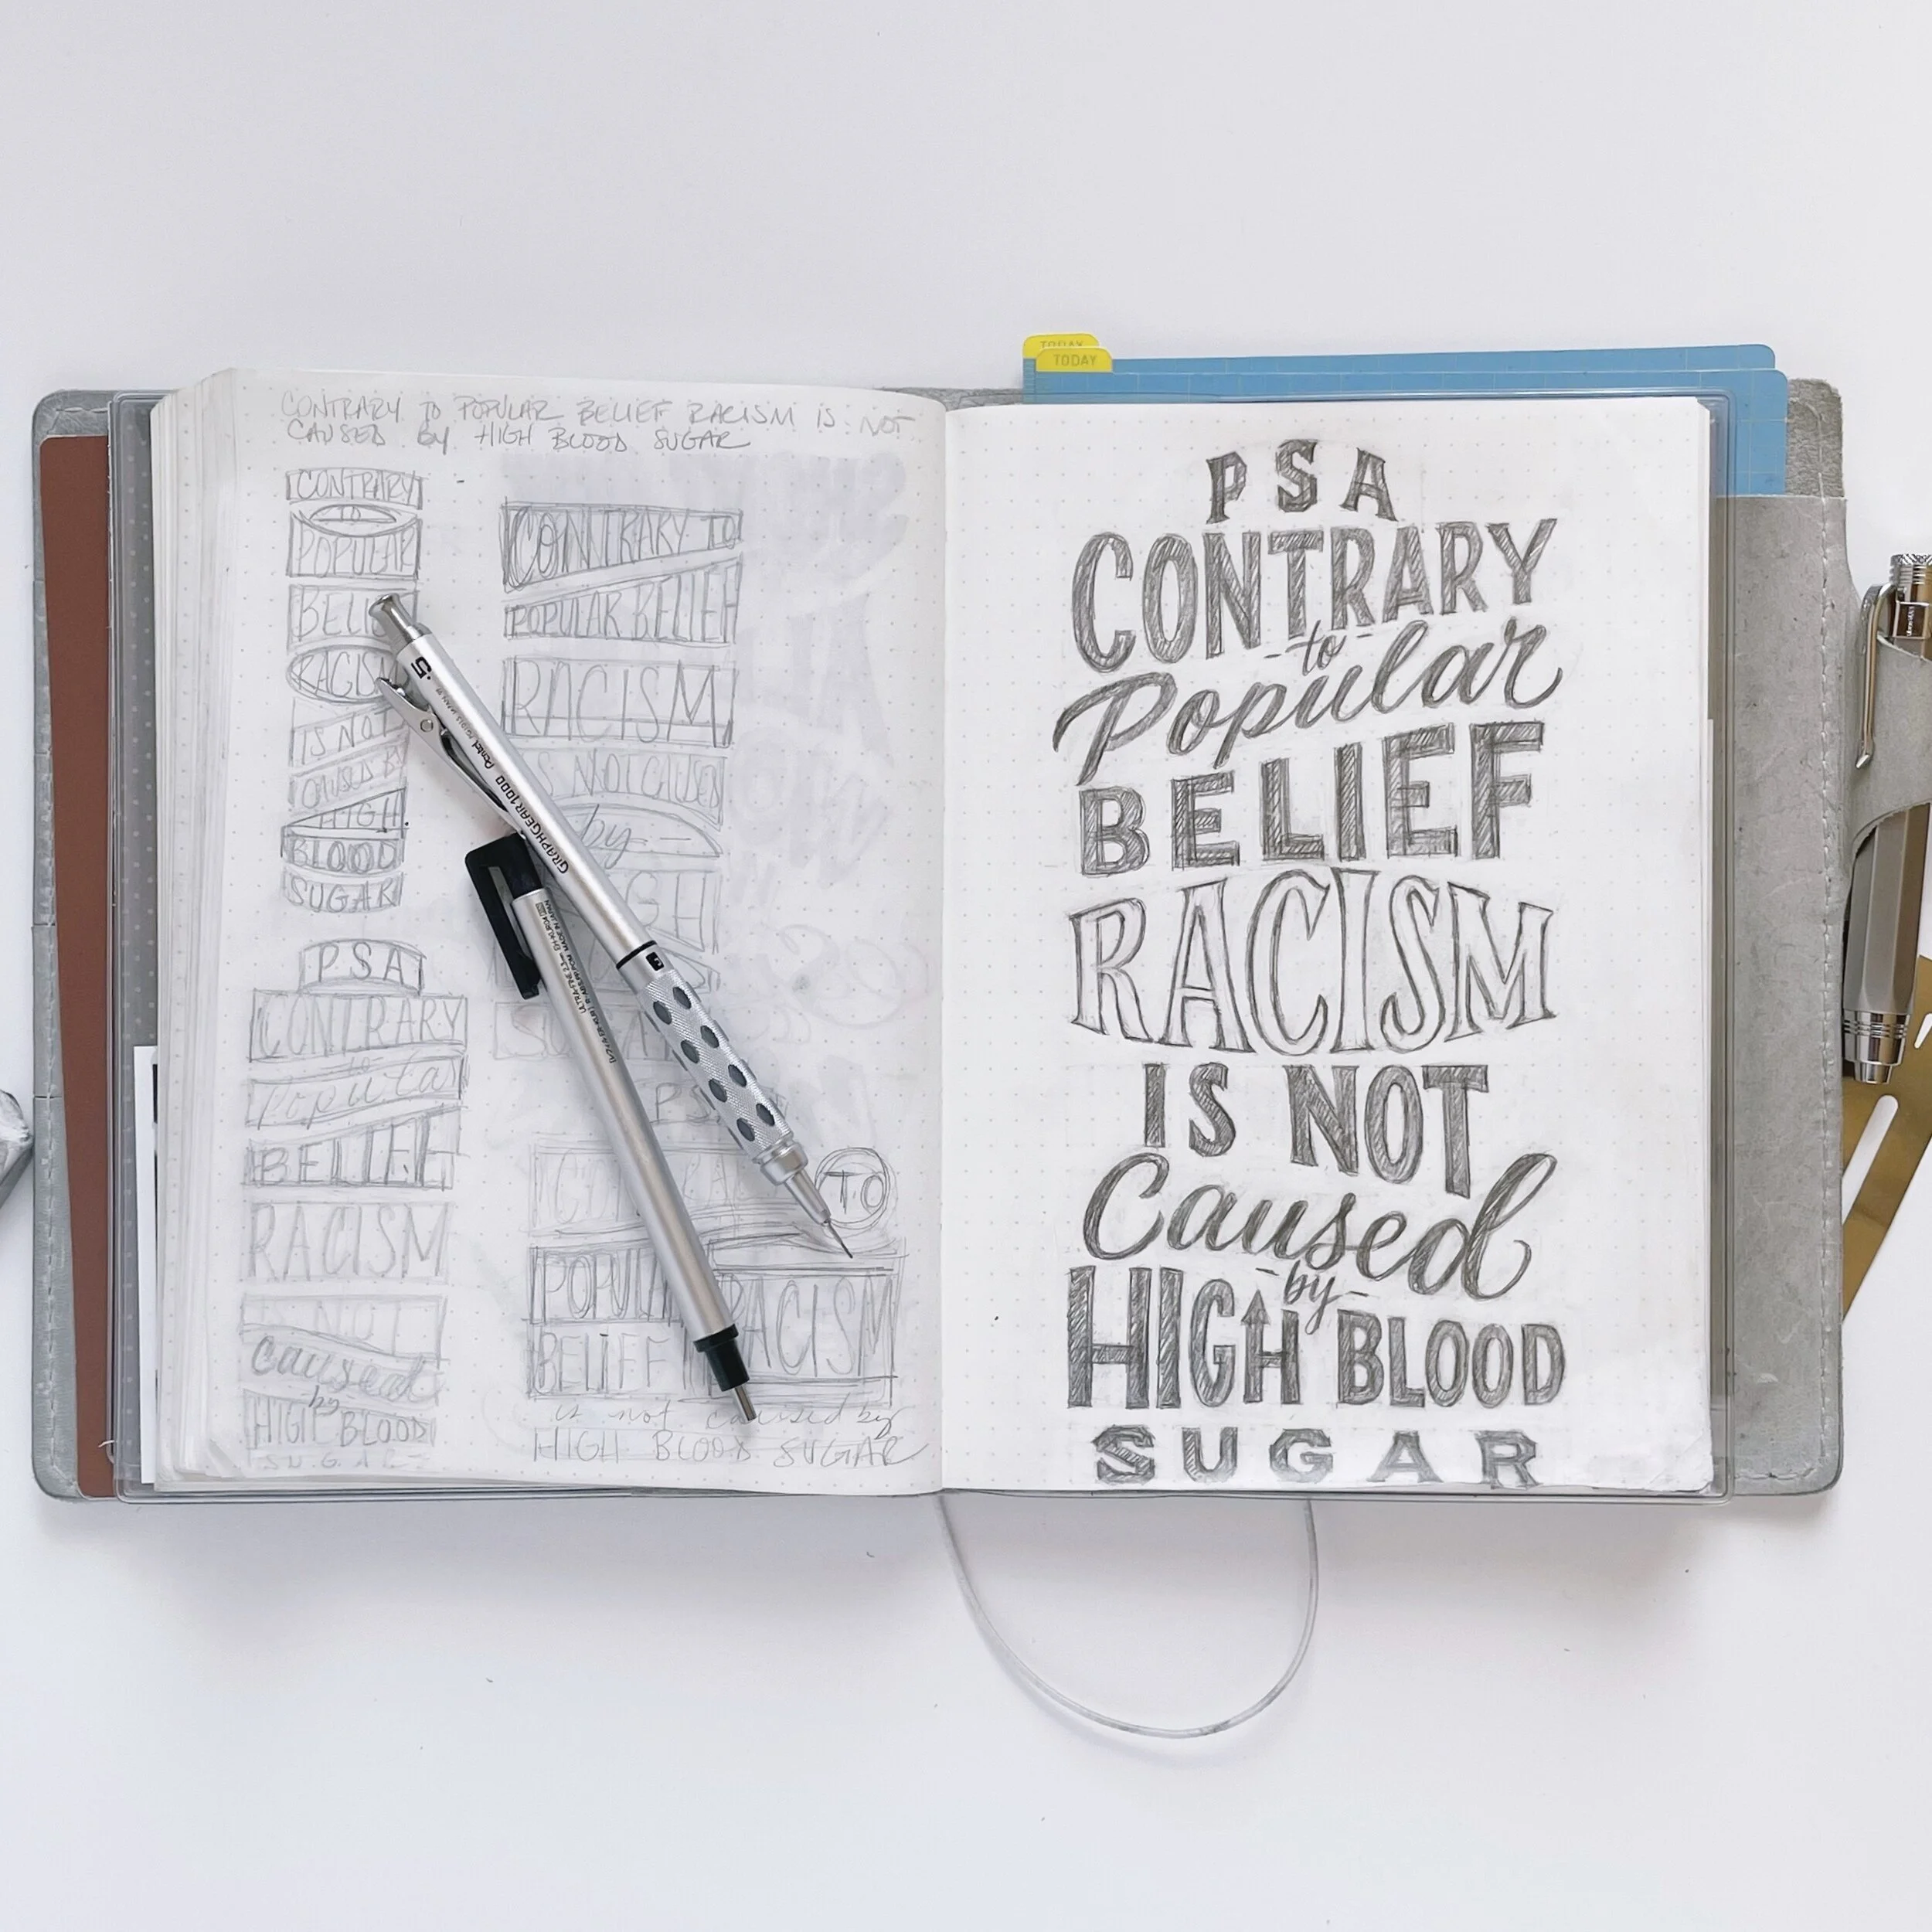 CONTRARY TO POPULAR BELIEF RACISM IS NOT
CAUSED By HIGH BLOOD SUGAR
CONTRARY
TO
POPULAR
BELIE
RACISM
IS NOT
CAUSED BY
HIGH
BLOOD
SUGAR
PSA
CONTRARY
to
Popular
BELIEF
RACISM
IS NOT
Caused
by
HIGH BLOOD
SUGAR
CONTRARY TO
POPULAR BELIEF
RACISM
IS NOT CAUSED
by
GH
SU
PS
CO
TO
POPUL
RACISM
BELIEF
is not caused by
HIGH BLOOD SUGAR
.5
Pentel
GRAPHGEAR 1000
TODAY
TODAY
PSA
CONTRARY
-to-
Popular
BELIEF
RACISM
IS NOT
Caused
-by-
HIGH BLOOD
SUGAR